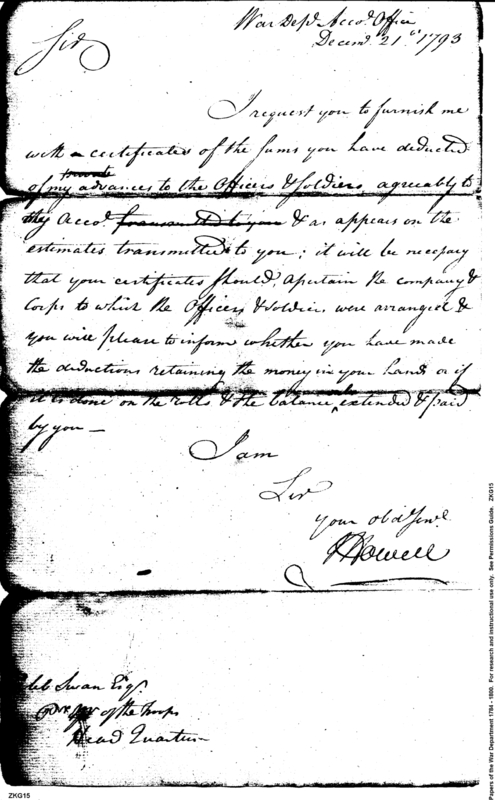 War Depd. Accod. Office
Decemr. 21st 1793
Sir
I request you to furnish me
with a certificate of the sums you have deducted
of my advances to the Officers & Soldiers agreeably to
my Accod. transmitted to you & as appears on the
estimates transmitted to you; it will be necessary
that your certificates should, apertain the company &
Corps to which the Officers & Soldiers were arranged &
you will please to inform whether you have made
the deductions retaining the money in your hands or if
it is done on the rolls & the balance extended & paid
by you —
I am
Sir
your obd Servt.
J Howell
leb Swan Esqr.
of the troops
Head Quarters
ZKG15
Papers of the War Department 1784 - 1800. For research and instructional use only. See Permissions Guide. ZKG15